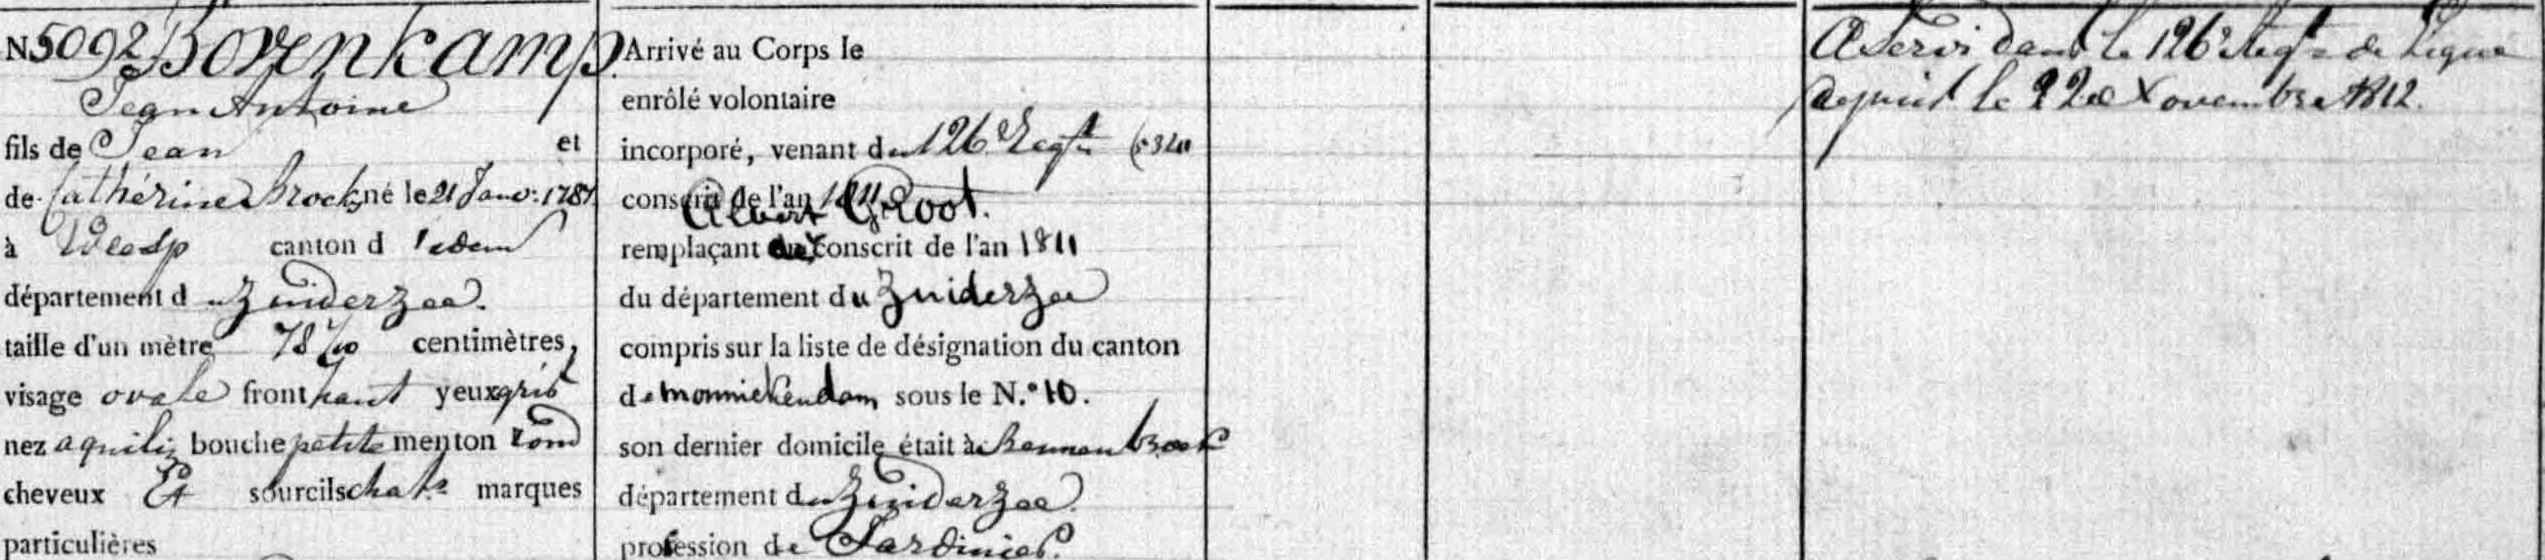 N 5092 Bovenkamp
Jean Antoine
fils de Jean et
de Cathérine Brock né le 21 Janv: 1787
à Weesp canton d'idem
département du Zuiderzee.
taille d'un mètre 78 centimètres,
visage ovale front haut yeux gris
nez aquilin bouche petite menton rond
cheveux Et sourcils chat.s marques
particulières
Arrivé au Corps le
enrôlé volontaire
incorporé, venant du 126e Regt
conscrit de l'an 1811
Albert Groot.
remplaçant conscrit de l'an 1811
du département du Zuiderzee
compris sur la liste de désignation du canton
de monnickendam sous le N.º 10.
son dernier domicile était à Bennenbroek
département du Zuiderzee
profession de Jardinier.
A Servi dans le 126e Regt de Ligne
depuis le 22 Novembre 1812.